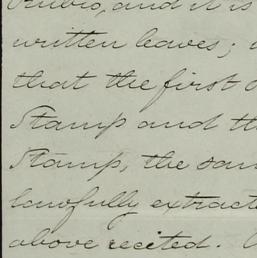 Rubio, and it is
written leaves;
that the first
Stamp and th
Stamp, the sam
lawfully extract
above recited.